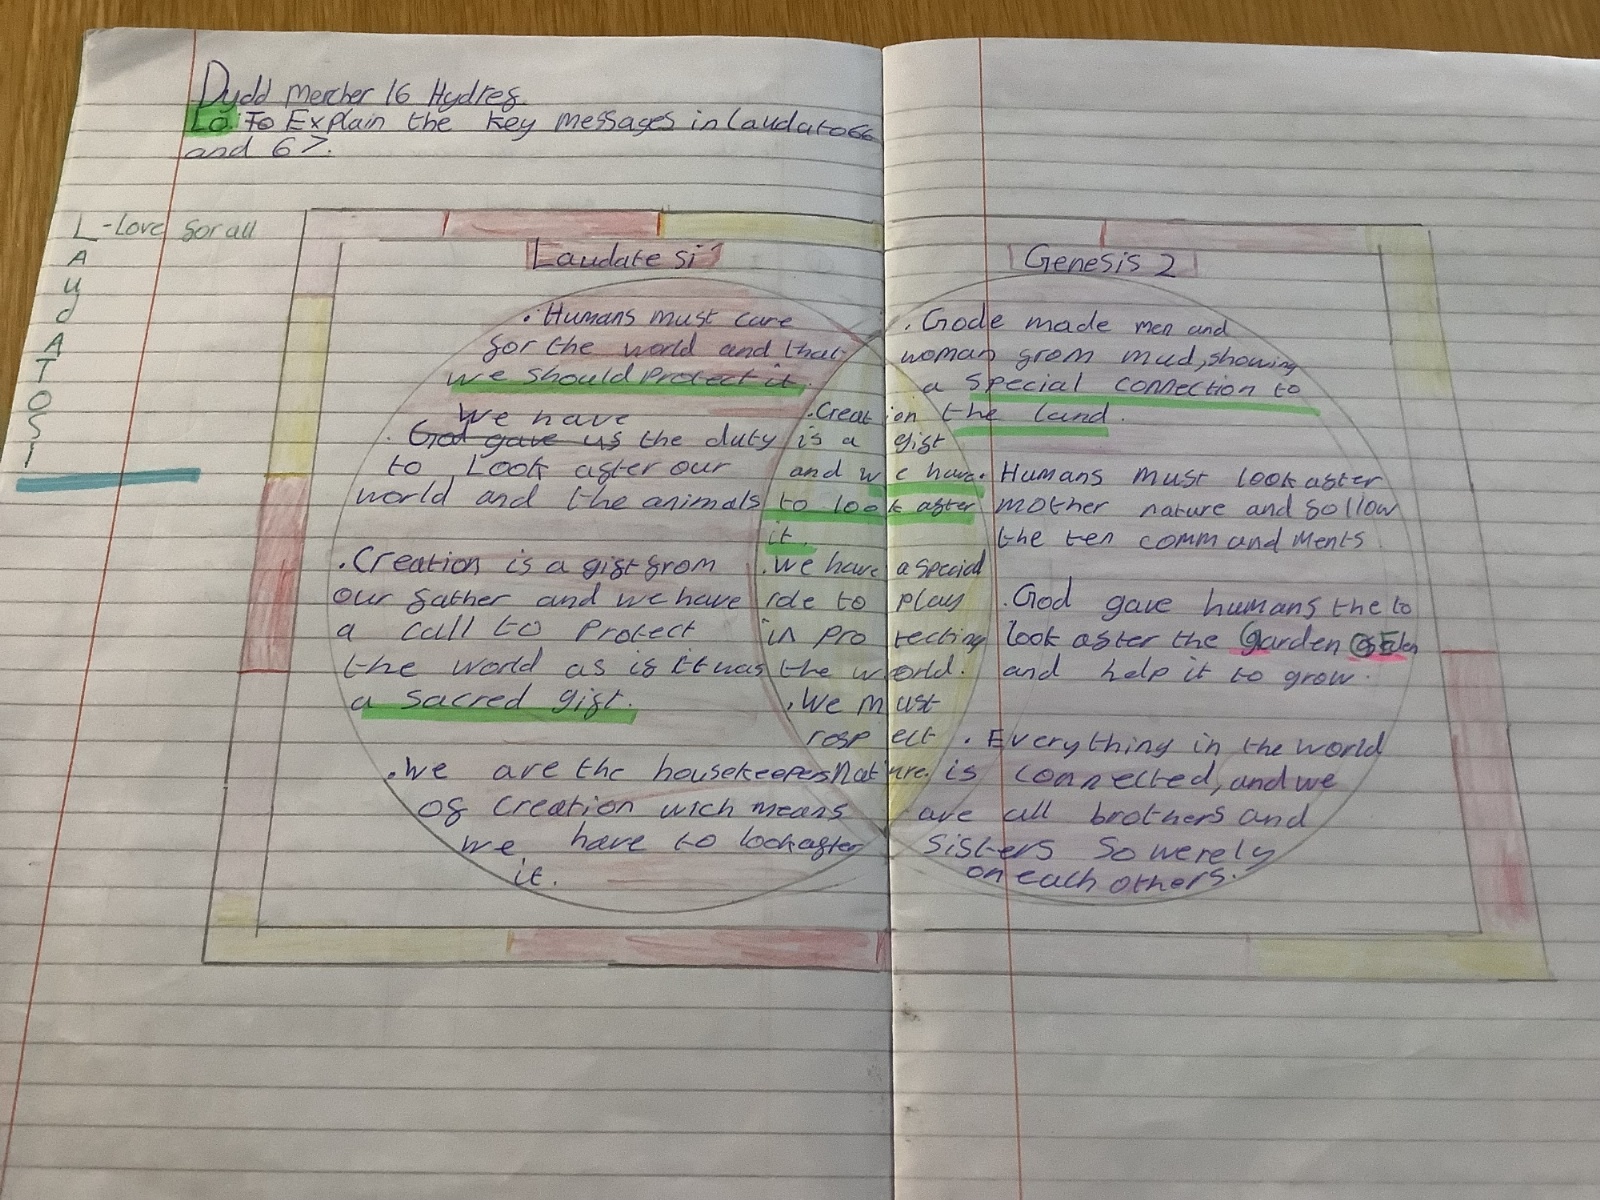 Dydd Mercher 16 Hydref
Lo: To Explain the key messages in Laudato 66
and 67.
L - Love for all
A
U
D
A
T
O
S
I
Laudate si
. Humans must care
for the world and that
we should Protect it.
We have
. God gave us the duty
to Look after our
world and the animals
. Creation is a gift from
our father and we have
a call to Protect
the world as is it was
a sacred gift.
. We are the housekeepers
of Creation wich means
we have to look after
it.
. Creation
is a gift
and we have
to look after
it.
. We have a special
role to play
in protecting
the world.
. We must
respect
Nature.
Genesis 2
. Gode made men and
woman from mud, showing
a special connection to
the land.
. Humans must look after
mother nature and follow
the ten commandments.
. God gave humans the to
look after the Garden of Eden
and help it to grow.
. Everything in the world
is connected, and we
are all brothers and
Sisters So we rely
on each others.